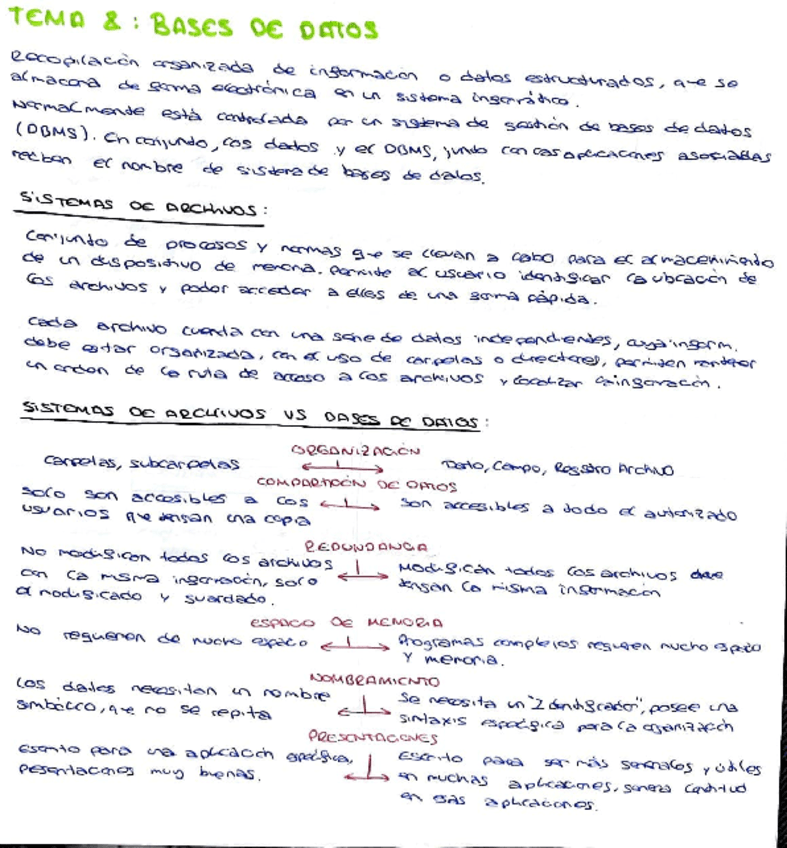 TEMA 8: BASES DE DATOS
Recopilación organizada de información o datos estructurados, que se
almacena de forma electrónica en un sistema informático.
Normalmente está controlada por un sistema de gestión de bases de datos
(DBMS). En conjunto, los datos y el DBMS, junto con las aplicaciones asociadas
reciben el nombre de sistema de bases de datos.
SISTEMAS DE ARCHIVOS:
Conjunto de procesos y normas que se llevan a cabo para el almacenamiento
de un dispositivo de memoria. Permite al usuario identificar la ubicación de
los archivos y poder acceder a ellos de una forma rápida.
Cada archivo cuenta con una serie de datos independientes, cuya inform.
debe estar organizada, con el uso de carpetas o directores, permiten mantener
un orden de la ruta de acceso a los archivos y localizar la información.
SISTEMAS DE ARCHIVOS VS BASES DE DATOS:
ORGANIZACIÓN
Carpetas, subcarpetas Dato, Campo, Registro Archivo
COMPARTICIÓN DE DATOS
Solo son accesibles a los Son accesibles a todo el autorizado
usuarios que tengan una copia
REDUNDANCIA
No modifican todos los archivos Modifican todos los archivos que
con la misma información, solo tengan la misma información
el modificado y guardado.
ESPACIO DE MEMORIA
No requieren de mucho espacio Programas complejos requieren mucho espacio
y memoria.
NOMBRAMIENTO
Los datos necesitan un nombre Se necesita un "Identificador", posee una
simbólico, que no se repita sintaxis específica para la organización
PRESENTACIONES
Escrito para una aplicación específica, Escrito para ser más generales y útiles
presentaciones muy buenas. en muchas aplicaciones, genera lentitud
en esas aplicaciones.